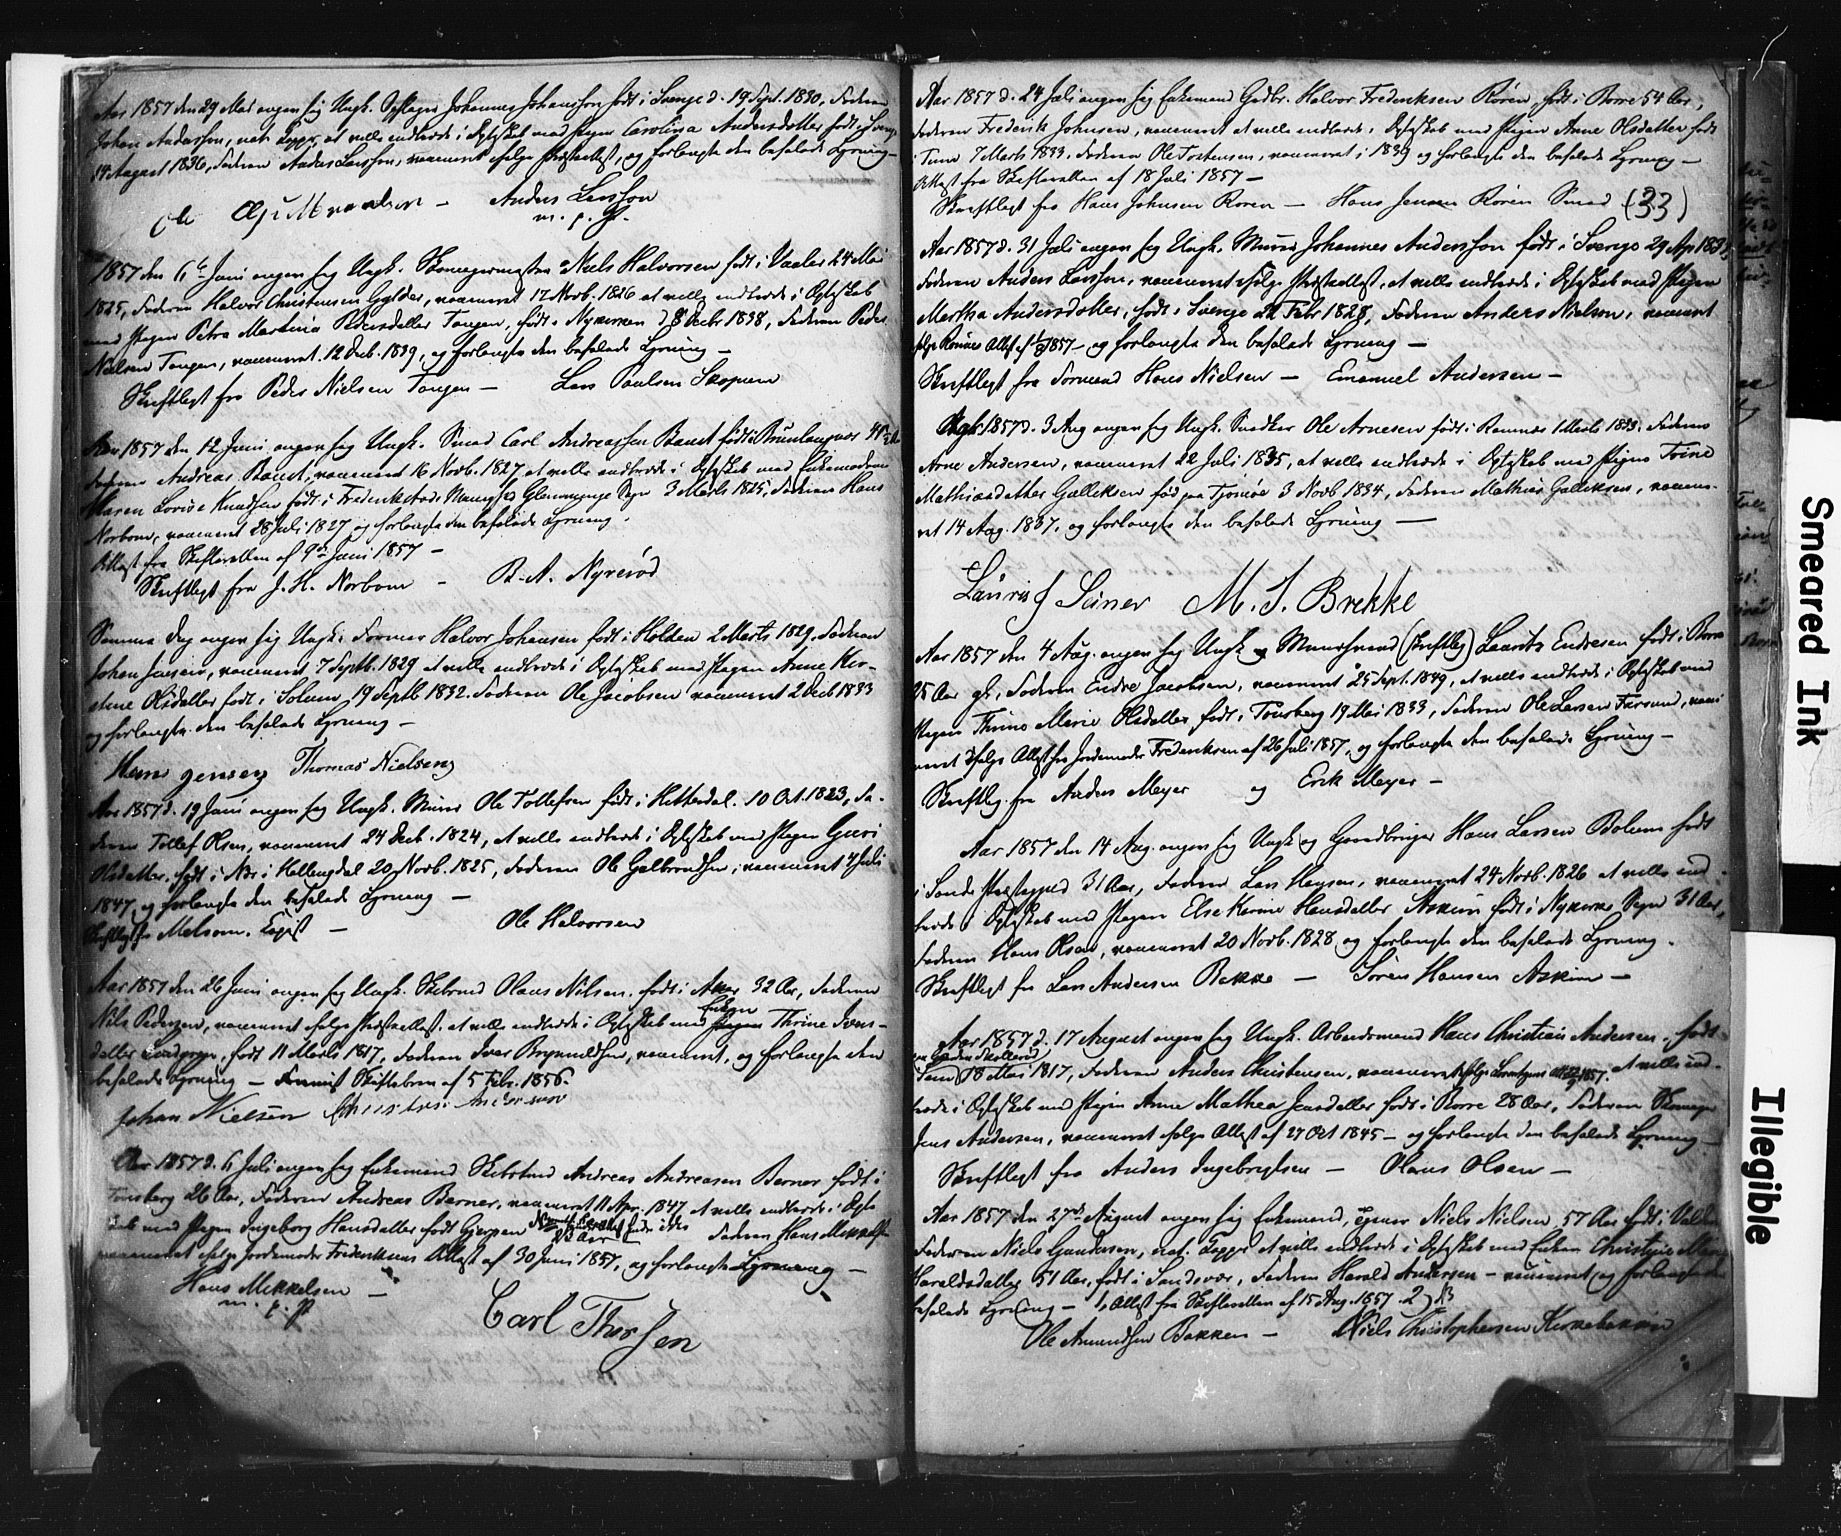 Aar 1857 den 29 Mai angav sig Ungk. Johannes Johansson født i Sverige d. 19 Sept. 1830, Faderen
Johan Andersson, at ville indtræde i Egteskab med Pigen Carolina Andersdotter født i Sverige
14 August 1836, Faderen Anders Larsson, vaccineret ifølge Præsteattest, og forlangte den befalede Lysning
Anders Larsson
m. p. P.
1857 den 6te Juni angav sig Ungk. Niels Halvorsen født i Vaaler 24 Mai
1825, Faderen Halvor Christensen Gylder, vaccineret 17 Novb. 1826 at ville indtræde i Egteskab
med Pigen Petra Martinia Pedersdatter Tangen, født i Nykirken d. 8 Decbr 1838, Faderen Peder
Nielsen Tangen, vaccineret 12 Decb. 1839, og forlangte den befalede Lysning —
Skriftligt fra Peder Nielsen Tangen — Lars Paulsen Skopum
Aar 1857 den 12 Juni angav sig Ungk. Smed Carl Andreassen Bandt født i Brunlaugnæs
Faderen Andreas Bandt, vaccineret 16 Novb. 1827, at ville indtræde i Egteskab med Enkemadame
Maren Lovise Knudsen født i Frederikstads Glemminge Sogn 3 Marts 1825, Faderen Hans
Norbom, vaccineret 28 Juli 1827 og forlangte den befalede Lysning.
Attest fra Skifteretten af 9de Juni 1857 —
Skriftligt fra J. H. Norbom — B. A. Nyrerød
Samme Dag angav sig Ungk. Former Halvor Johansen født i Holden 2 Marts 1829, Faderen
Johan Jensen, vaccineret 7 Septb. 1829 at ville indtræde i Egteskab med Pigen Anne Kir-
stine Olsdatter født i Solum, 19 Septb 1832. Faderen Ole Jacobsen vaccineret 2 Decb 1833
og forlangte den befalede Lysning —
Hans Jensen Thomas Nielsen
Aar 1857 d. 19 Juni angav sig Ungk. Murer Ole Tollefsen født i Hitterdal 10 Oct. 1823, Fa-
deren Tollef Olsen, vaccineret 24 Decb. 1824, at ville indtræde i Egteskab med Pigen Guri
Olsdatter, født i Næs i Hallingdal 20 Novb. 1825, Faderen Ole Galbrandsen, vaccineret 4 Juli
1847, og forlangte den befalede Lysning —
Skriftligt fra Melsom — Ole Halvorsen
Aar 1857 den 26 Juni angav sig Ungk. Olaus Nilsen, født i Aker 32 Aar, Faderen
Nils Pedersen, vaccineret ifølge Præsteattest, at ville indtræde i Egteskab med Enken Thrine Ivers-
datter født 11 Marts 1817, Faderen Iver Brynildsen, vaccineret, og forlangte den
befalede Lysning — Skiftebrev af 5 Febr. 1856.
Johan Nielsen Christen Andersen
Aar 1857 d. 6 Juli angav sig Enkemand Andreas Andreasen Berner født i
Tønsberg 26 Aar, Faderen Andreas Berner, vaccineret 11 Apr. 1847 at ville indtræde i Egte-
skab med Pigen Ingeborg Hansdatter, født Gjerpen Faderen Hans Mikkelsen
vaccineret ifølge Jordemoder Frederiksens Attest af 30 Juni 1857, og forlangte Lysning —
Hans Mikkelsen —
m. p. P.
Carl Thorsen
Aar 1857 d. 24 Juli angav sig Enkemand Gdbr. Halvor Frederiksen Røren, født i Borre 54 Aar,
Faderen Frederik Johnsen, vaccineret at ville indtræde i Egteskab med Pigen Anne Olsdatter født
i 7 Marts 1833, Faderen Ole Torstensen, vaccineret i 1839 og forlangte den befalede Lysning —
Attest fra Skifteretten af 18 Juli 1857 —
Skriftligt fra Hans Johnsen Røren — Hans Jensen Røren Smed (33)
Aar 1857 d. 31 Juli angav sig Ungk. Murer Johannes Andersson født i Sverige 29 Apr 1833,
Faderen Anders Larsson, vaccineret ifølge Præsteattest, at ville indtræde i Egteskab med Pigen
Martha Andersdatter, født i Sverige 22 Febr 1828, Faderen Anders Nielson, vaccineret
1857 — og forlangte den befalede Lysning —
Skriftligt fra Formand Hans Nielsen — Emanuel Andersen —
Aar 1857 d. 3 Aug angav sig Ungk. Snedker Ole Arnesen født i Ramnæs 1 Marts 1833. Faderen
Arne Andersen, vaccineret 22 Juli 1835, at ville indtræde i Egteskab med Pigen Trine
Mathiasdatter Galliksen fød paa Tjømøe 3 Novb 1834, Faderen Mathias Galliksen, vaccine-
ret 14 Aug. 1837, og forlangte den befalede Lysning —
M. J. Brekke
Aar 1857 den 4 Aug. angav sig Ungk og (skriftlig) Laurits Endresen født i Borre
25 Aar gl., Faderen Endre Jacobsen, vaccineret 25 Sept. 1849, at ville indtræde i Egteskab med
Pigen Thrine Marie Olsdatter født i Tønsberg 19 Mai 1833, Faderen Ole Larsen Farsund, vacci-
neret ifølge Attest fra Jordemoder Frederiksen af 26 Juli 1857, og forlangte den befalede Lysning —
Skriftlig fra Anders Meyer og Erik Meyer —
Aar 1857 den 14 Aug. angav sig Ungk og Gaardbruger Hans Larsen Bolum født
i Sande Præstegjeld 31 Aar, Faderen Lars Hansen, vaccineret 24 Novb. 1826 at ville ind-
træde i Egteskab med Pigen Else Karine Hansdatter Askim født i Nykirke Sogn 31 Aar,
Faderen Hans Olsen, vaccineret 20 Novb. 1828 og forlangte den befalede Lysning.
Skriftligt fra Lars Andersen Bakke — Søren Hansen Askim —
Aar 1857 d. 17 August angav sig Ungk. Arbeidsmand Hans Christian Andersen, født
18 Mai 1817, Faderen Anders Christensen, vaccineret 1857. at ville ind-
træde i Egteskab med Pigen Anne Mathea Jensdatter født i Borre 28 Aar, Faderen Skomager
Jens Andersen, vaccineret ifølge Attest af 27 Oct 1845 — og forlangte den befalede Lysning —
Skriftligt fra Anders Ingebrigtsen — Olaus Olsen —
Aar 1857 den 27de August angav sig Enkemand, Niels Nielsen 57 Aar født i
Faderen Niels Gundersen, at ville indtræde i Egteskab med Enken Christine Marie
Haraldsdatter 51 Aar, født i Sandsvær, Faderen Harald Andersen — vaccineret, og forlangte den
befalede Lysning — 1, Attest fra Skifteretten af 15 Aug. 1857. 2)
Ole Amundsen Bakken — Niels Christophersen Kirkebakken
Smeared Ink
Illegible